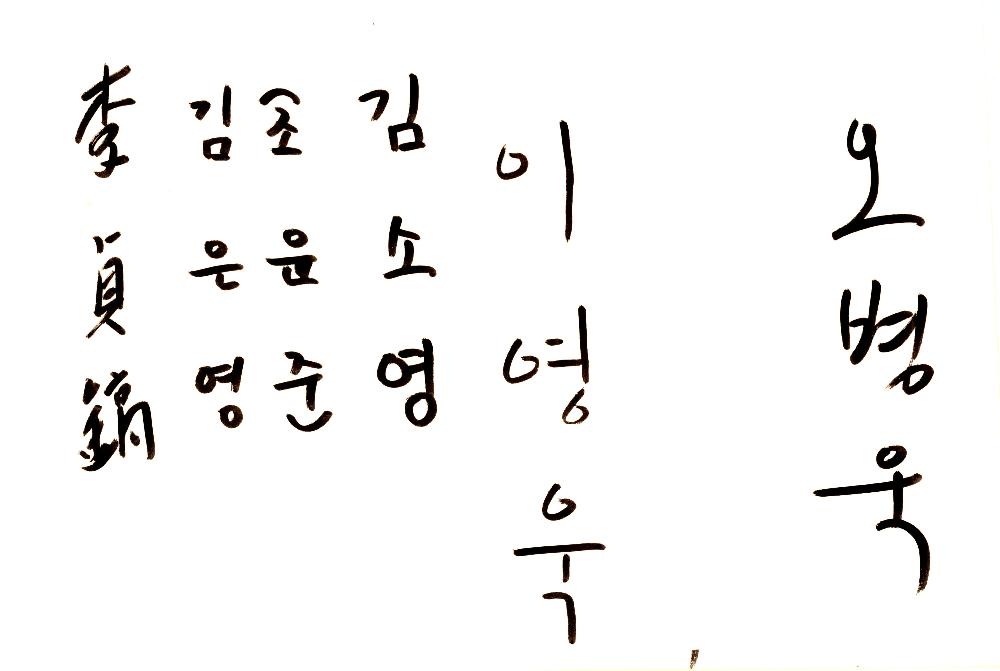 오병욱
이영욱
김소영
(조윤준)
김은영
李貞鎬